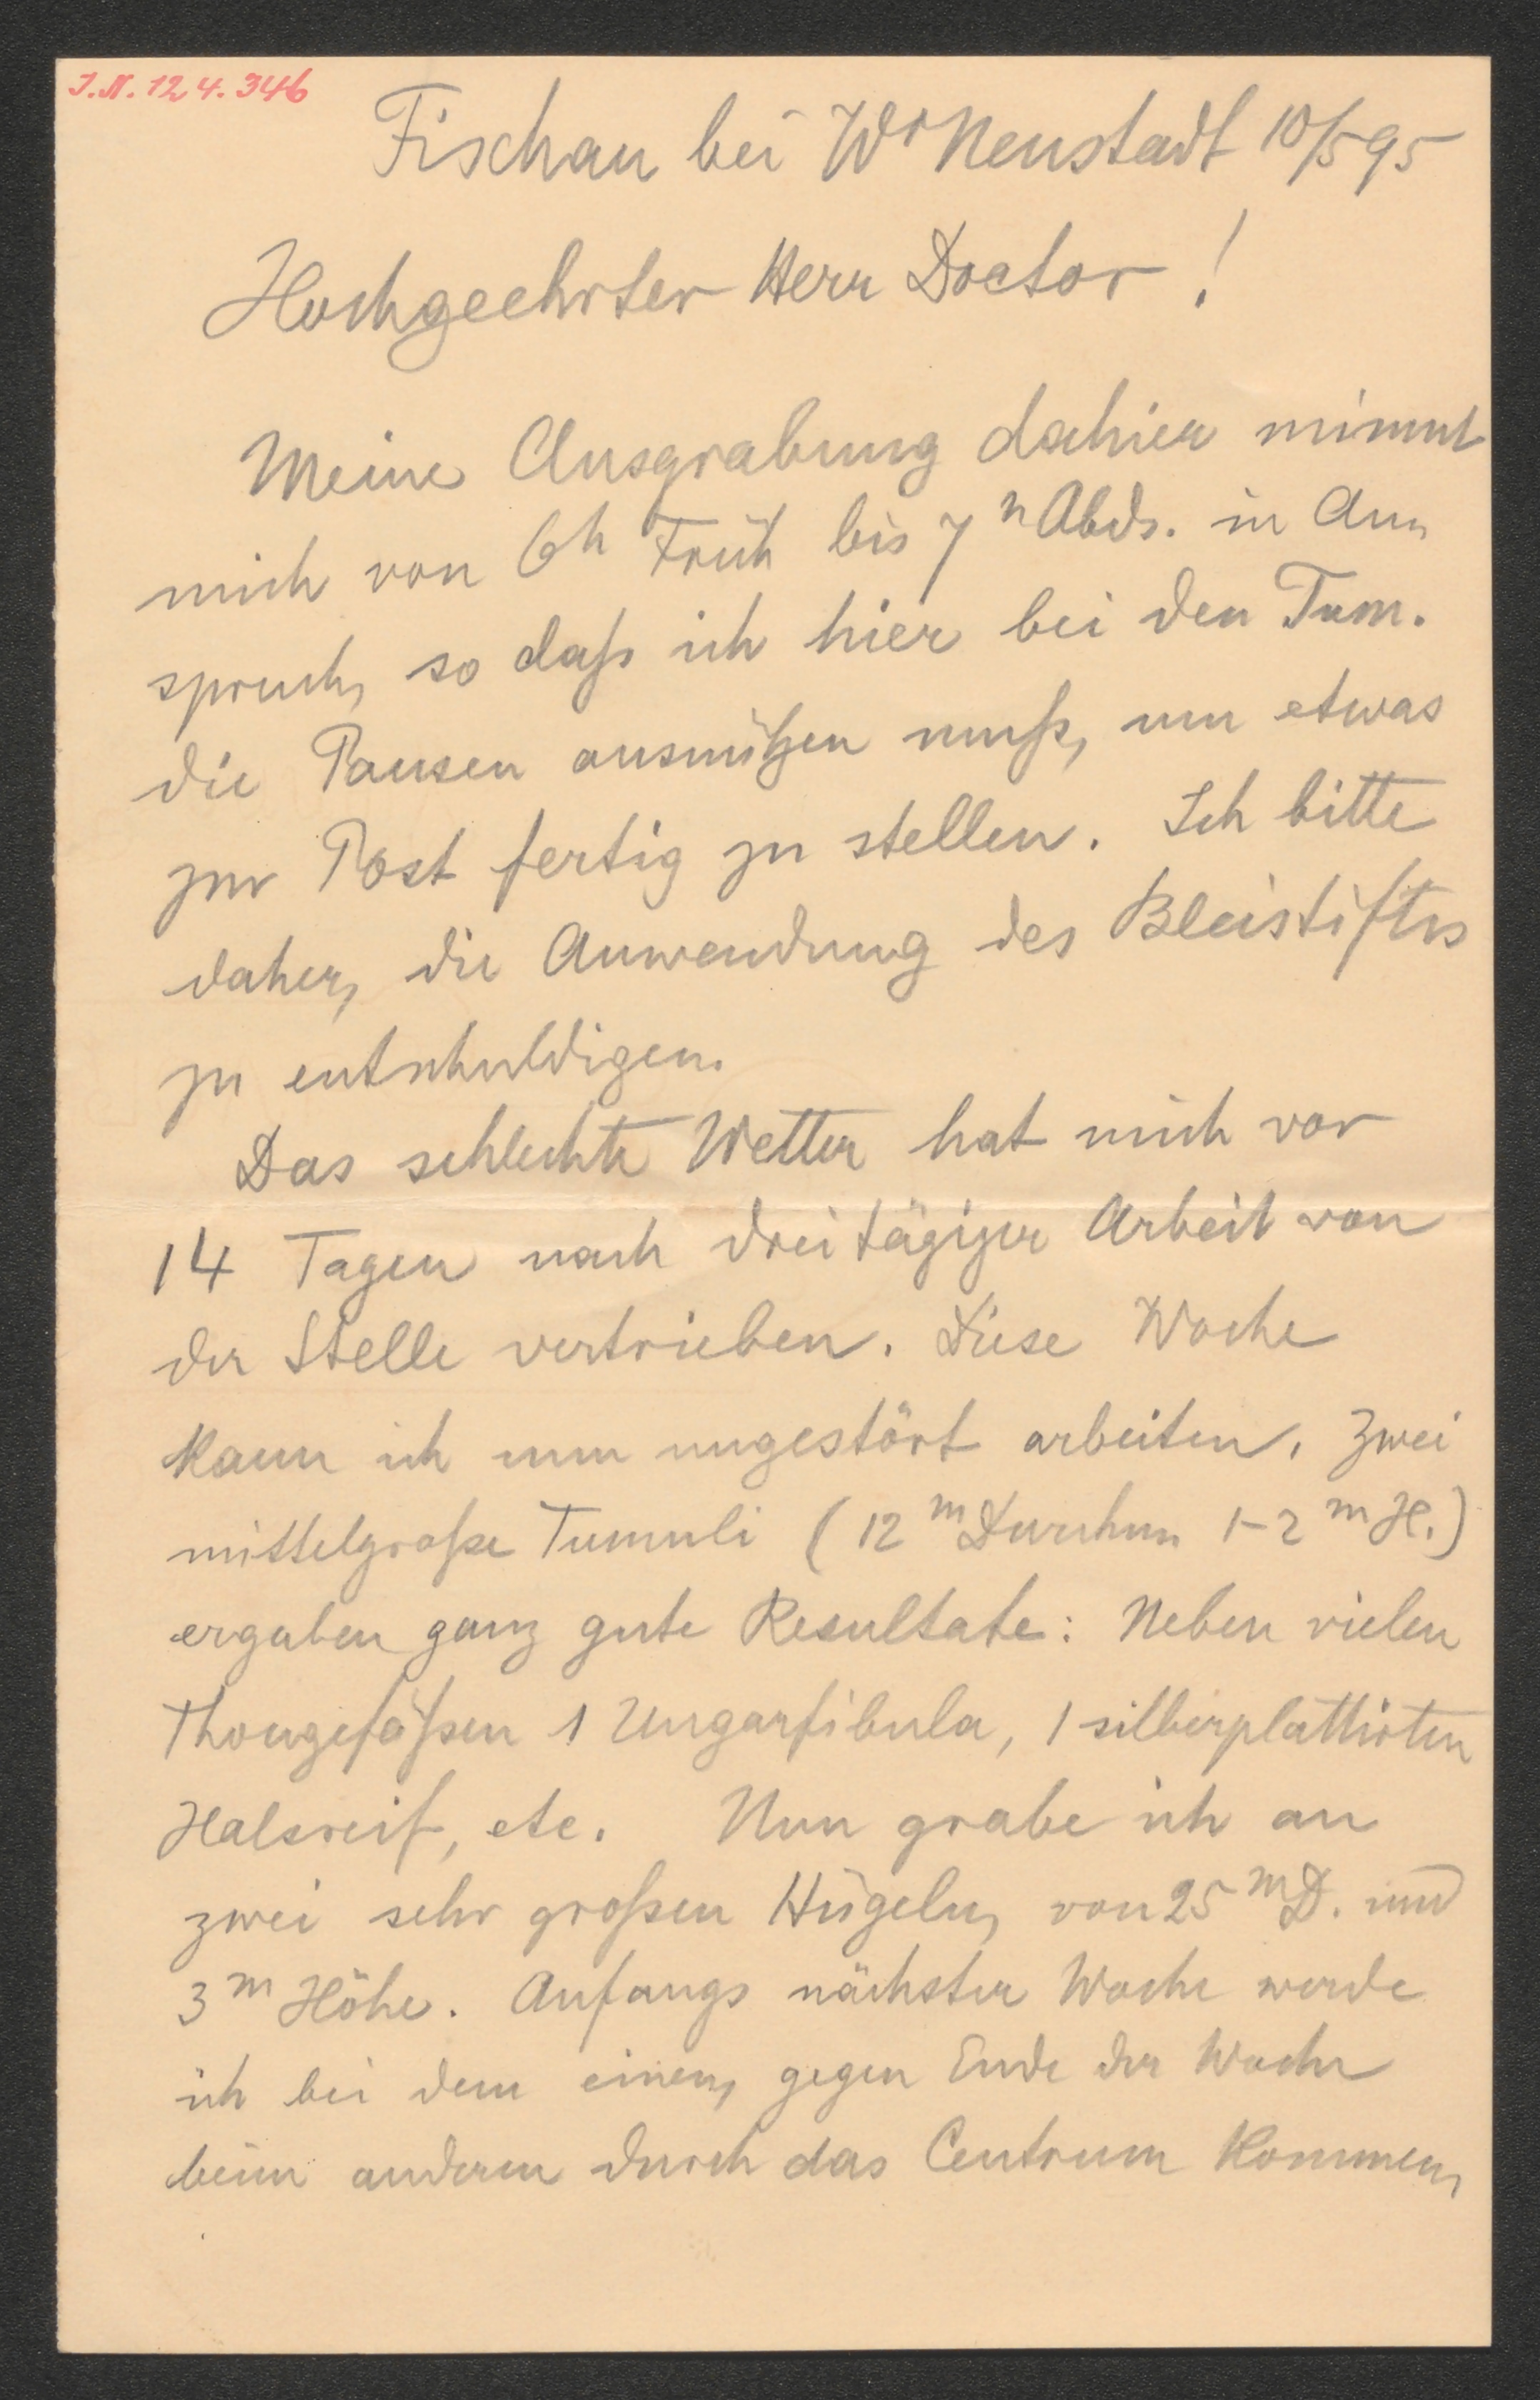 J.N. 124.346
Fischau bei Wr Neustadt 10/5 95
Hochgeehrter Herr Doctor!
Meine Ausgrabung dahier nimmt
mich von 6h Früh bis 7h Abds. in An-
spruch, so daß ich hier bei den Tum.
die Pausen ausnützen muß, um etwas
zur Post fertig zu stellen. Ich bitte
daher, die Anwendung des Bleistiftes
zu entschuldigen.
Das schlechte Wetter hat mich vor
14 Tagen nach dreitägiger Arbeit von
der Stelle vertrieben. Diese Woche
kann ich nun ungestört arbeiten. Zwei
mittelgroße Tumuli (12 m Durchm 1-2 m H.)
ergaben ganz gute Resultate: Neben vielen
Thongefäßen 1 Ungarfibula, 1 silberplattirten
Halsreif, etc. Nun grabe ich an
zwei sehr großen Hügeln, von 25 m D. und
3 m Höhe. Anfangs nächster Woche werde
ich bei dem einen, gegen Ende der Woche
beim anderen durch das Centrum kommen,